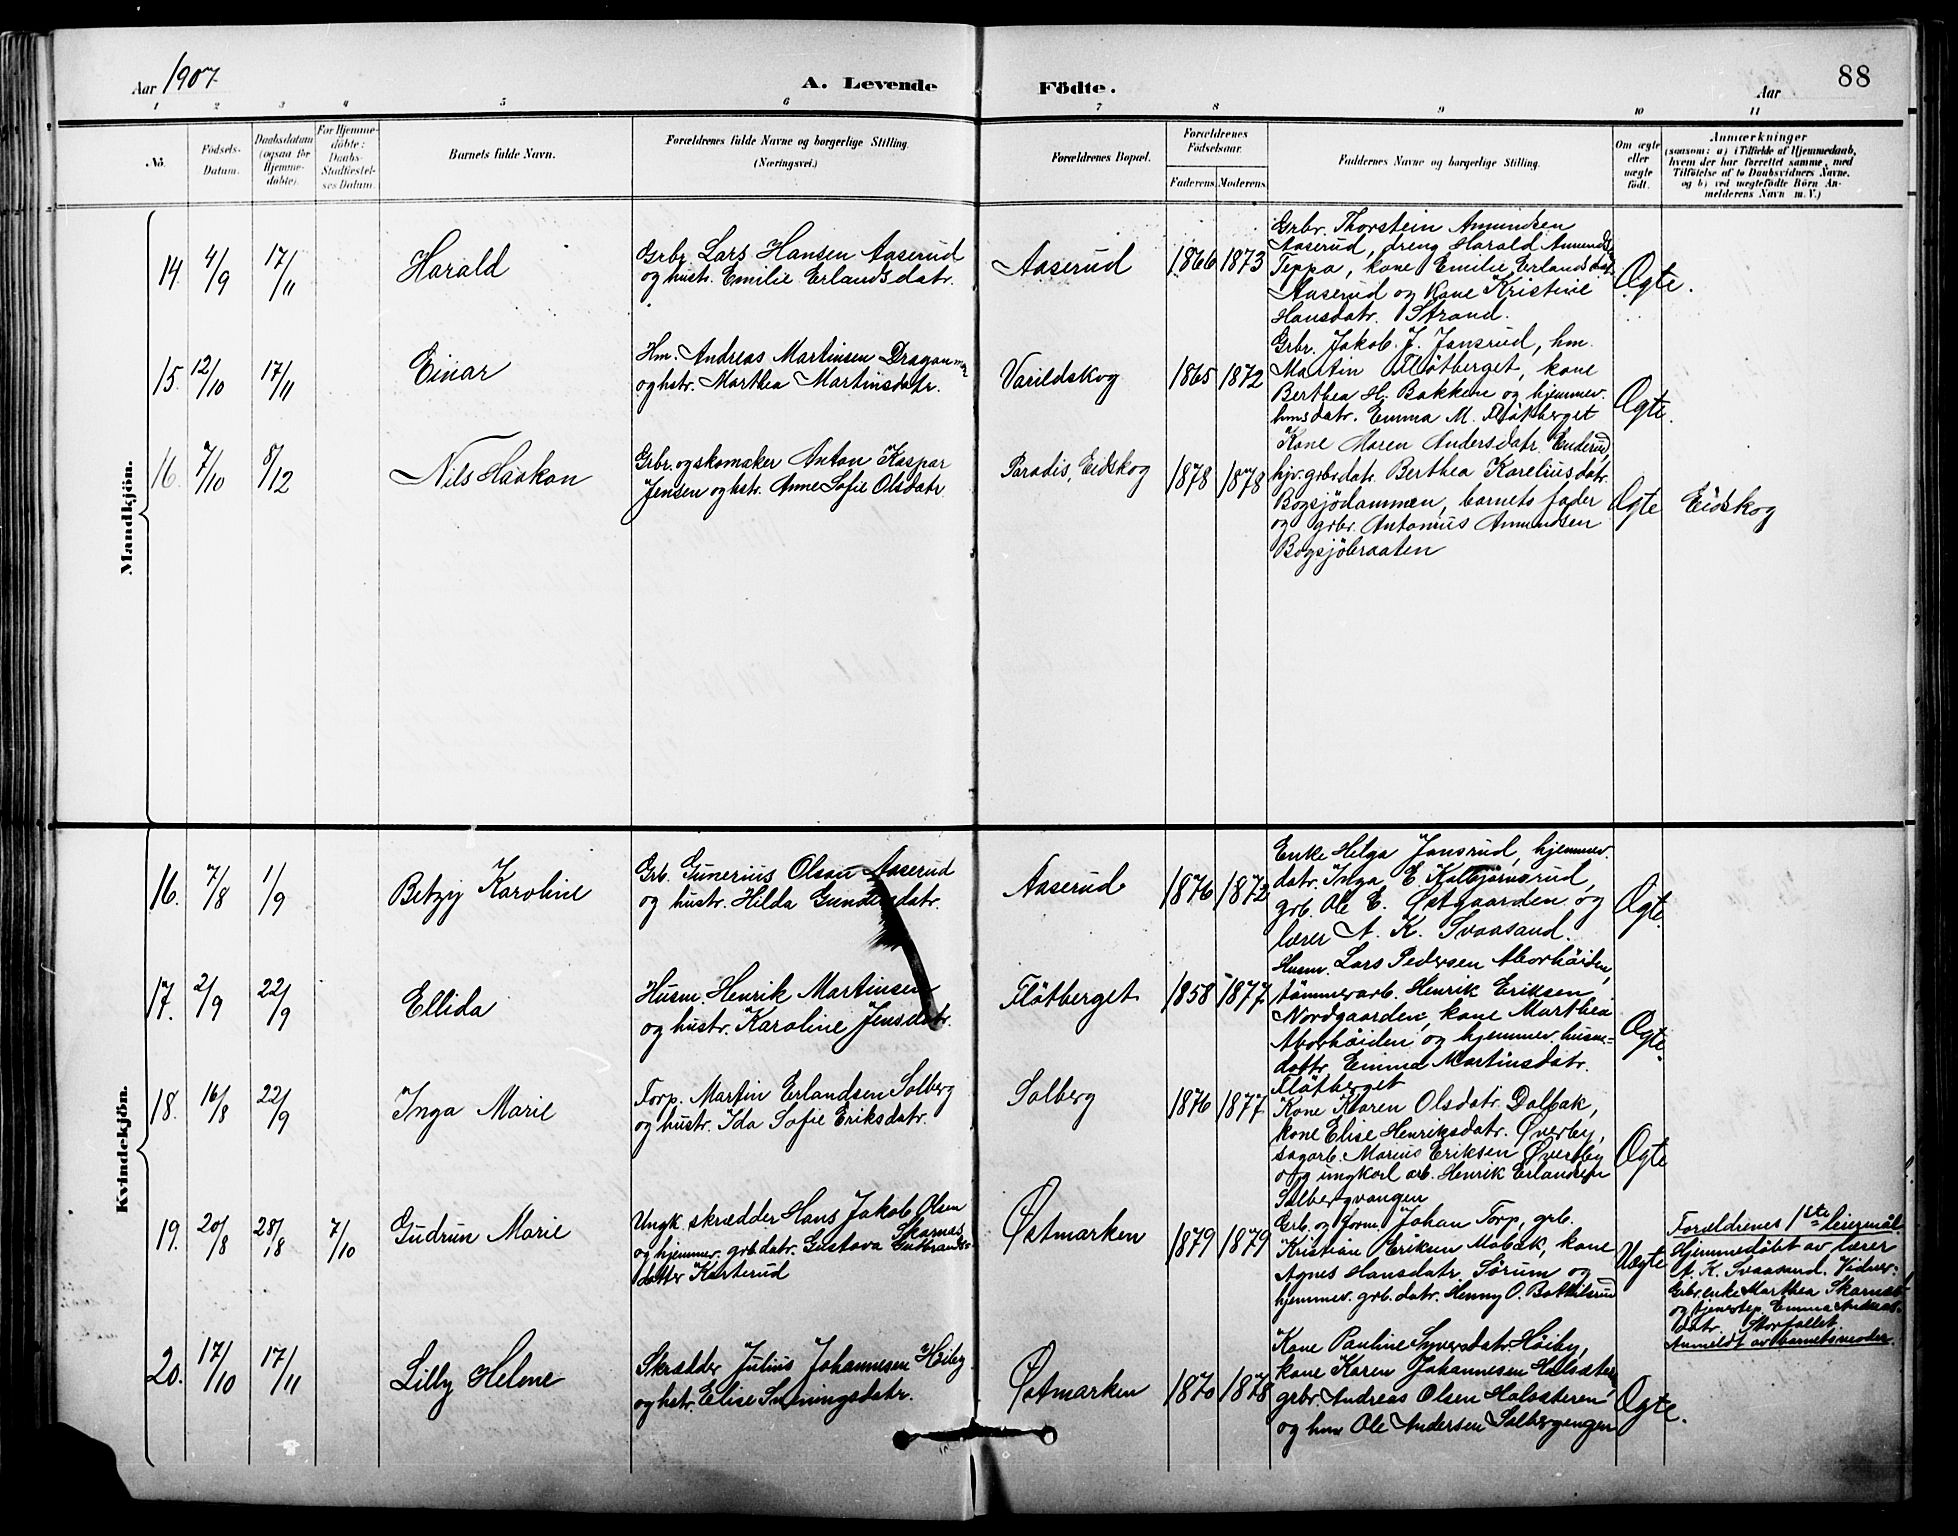 Aar 1907
A. Levende Födte.
Aar
88
1 2 3 4 5 6 7 8 9 10 11
No.
Födsels-
Datum.
Daabsdatum
(ogsaa for
Hjemme-
döbte).
For Hjemme-
döbte:
Daabs-
Stadfæstel-
ses Datum.
Barnets fulde Navn.
Forældrenes fulde Navne og borgerlige Stilling.
(Næringsvei.)
Forældrenes Bopæl.
Forældrenes
Födselsaar.
Faderens
Moderens
Faddernes Navne og borgerlige Stilling.
Om ægte
eller
uægte
födt.
Anmærkninger
(saasom: a) i Tilfælde af Hjemmedaab,
hvem der har forrettet samme, med
Tilföielse af to Daabsvidners Navne,
og b) ved uægtefödte Börn An-
melderens Navn m. V.)
Mandkjön.
14. 4/9 17/11
Harald
Grbr. Lars Hansen Aaserud
og hustr. Emilie Erlandsdatr.
Aaserud
1866 1873
Grbr. Thorstein Amundsen
Aaserud, dreng Harald Amunds.
Teppa, kone Emilie Erlandsdatr
Aaserud og Kone Kristine
Hansdatr. Strand.
Ægte.
15. 12/10 17/11
Einar
Hm. Andreas Martinsen
og hstr. Marthea Martinsdatr.
Varildskog
1865 1872
Grbr. Jakob. J. Jansrud, hm.
Martin Fløtberget, kone
Berthea H. Bakken og hjemmev.
hmsdatr. Emma M. Fløtberget
Ægte.
16. 7/10 8/12
Nils Haakon
Grbr. og skomaker Anton Kaspar
Jensen og hstr. Anne Sofie Olsdatr
Paradis, Eidskog
1878 1878
Kone Maren Andersdatr. Enderud,
hjv. grbrdatr. Berthea Kareliusdatr.
Bogsjödammen, barnets fader
og grbr. Antonius Amundsen
Bogsjöbraaten
Ægte
Eidskog
Kvindekjön.
16. 7/8 1/9
Betzy Karoline
Grb. Gunerius Olsen Aaserud
og hustr. Hilda Gundersdatr.
Aaserud
1876 1872
Enke Helga Jansrud, hjemmev.
datr. Inga E. Kolbjørnsrud,
grb. Ole E. Østgaarden og
lærer A. K. Svaasand.
Ægte.
17. 2/9 22/9
Ellida
Husm. Henrik Martinsen
og hustr. Karoline Jensdatr.
Fløtberget
1858 1877
Husm. Lars Pedersen Aborhöiden,
tømmerarb. Henrik Eriksen
Nordgaarden, kone Marthea
Aborhöiden og hjemmev. husm-
dattr. Emma Martinsdatr.
Fløtberget
Ægte.
18. 16/8 22/9
Inga Marie
Torp. Martin Erlandsen Solberg
og hustr. Ida Sofie Eriksdatr.
Solberg
1876 1877
Kone Karen Olsdatr. Dalbak,
kone Elise Henriksdatr. Øverby,
sagarb. Marius Eriksen Øverby
og ungkarl arb. Henrik Erlandsen
Solbergvangen
Ægte
19. 20/8 28/8 7/10
Gudrun Marie
Ungk. skrædder Hans Jakob Olsen
Skarnæs
og hjemmev. grb.datr. Gustava Gulbrands-
datter Karterud
Østmarken
1879 1879
Grb. og Johan Torp, grb.
Kristian Eriksen Mobæk, kone
Agnes Hansdatr. Sørum og
hjemmev. grb. datr. Henny O. Bothilsrud
Uægte
Forældrenes 1ste leiermål.
Hjemmedøbt av lærer
A. K. Svaasand. Vidner:
Grbr.enke Marthea Skarnæs
og tjenestep. Emma Andreas-
datr. Storfallet.
Anmeldt av barnets moder.
20. 17/10 17/11
Lilly Helene
Skrædder Julius Johannesen Höiby
og hstr. Elise Svenningsdatr.
Østmarken
1870 1878
Kone Pauline Syversdatr. Höiby,
kone Karen Johannesen
grbr. Andreas Olsen Halvsteren
og hm. Ole Andersen Solbergengen
Ægte.